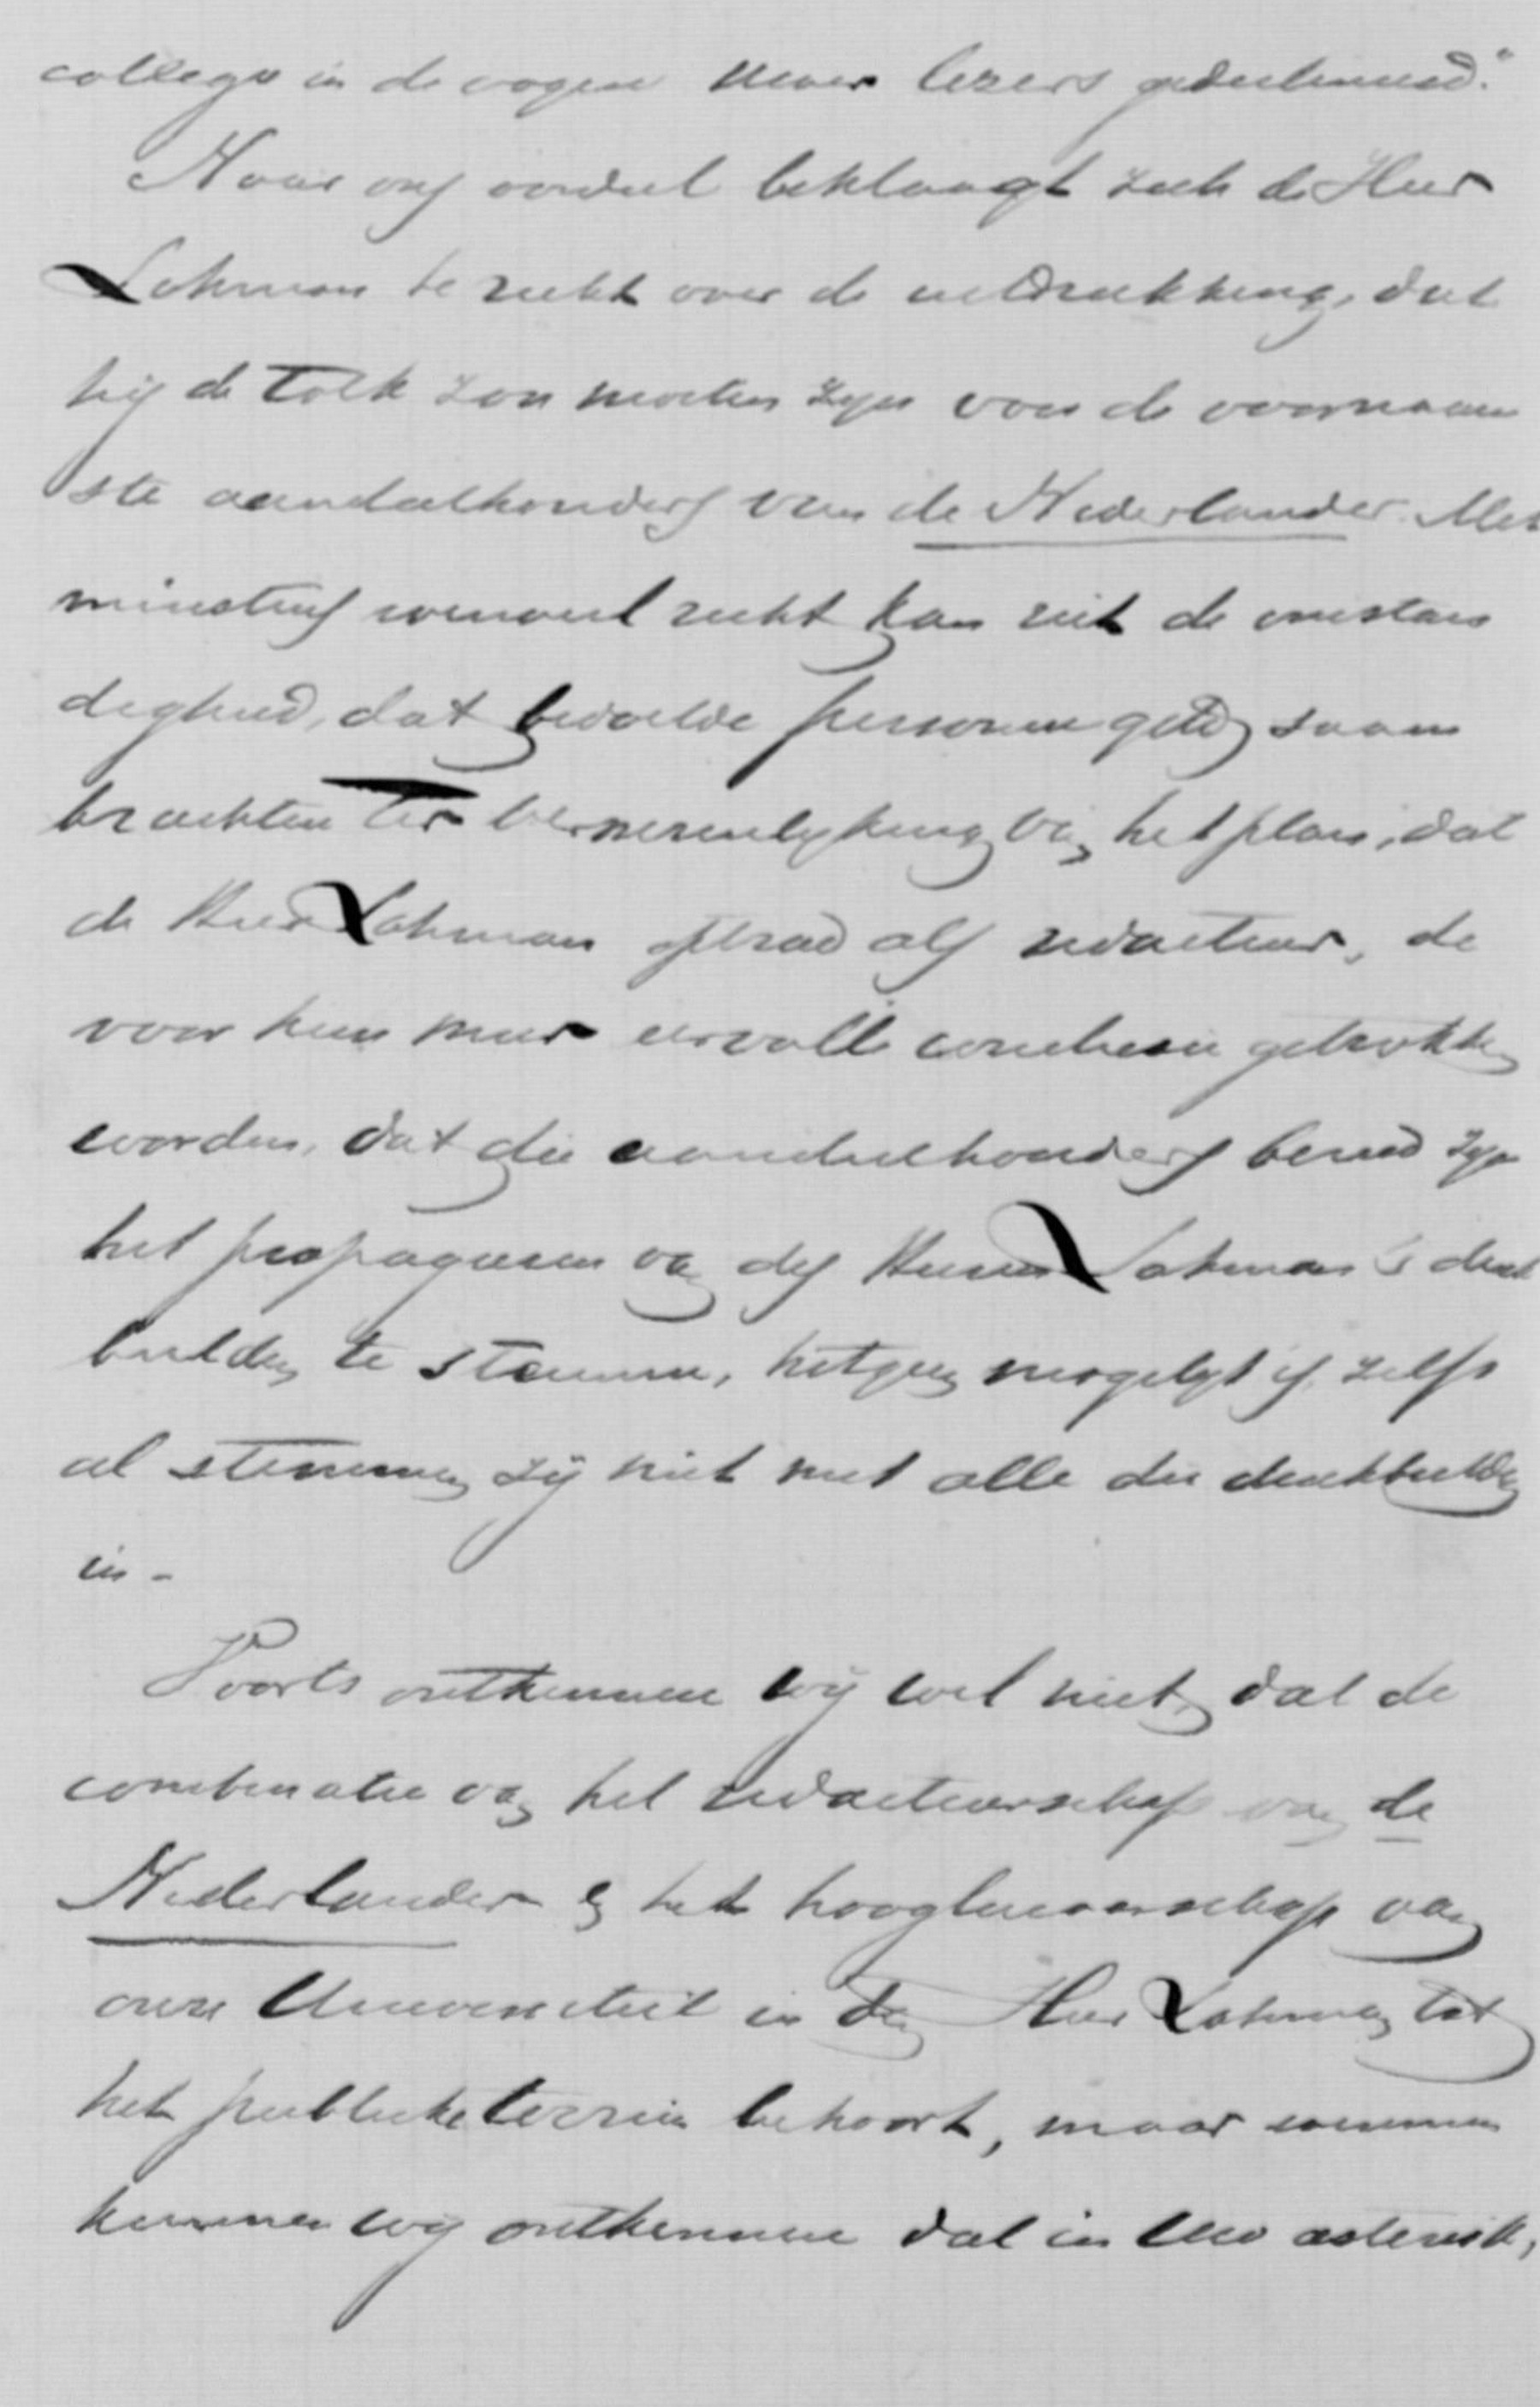 collega in de oogen Uwer lezers gediscrimineerd."
Naar ons oordeel beklaagt zich de Heer
Lohman te recht over de uitdrukking, dat
hij de tolk zou moeten zijn van de voornaam
ste aandeelhouders van de Nederlander. Met
minstens evenveel recht kan uit de omstan
digheid, dat bedoelde personen geld saam
brachten ter verwezenlijking van het plan, dat
de Heer Lohman optrad als redacteur, de
voor hun meer eervolle conclusie getrokken
worden, dat die aandeelhouders bereid zijn
het propageeren van des Heeren Lohman's denk
beelden te steunen, hetgeen mogelijk is, zelfs
al stemmen zij niet met alle die denkbeelden
in.
Voorts ontkennen wij wel niet, dat de
combinatie van het redacteurschap van de
Nederlander en het hoogleeraarschap van
onze Universiteit in den Heer Lohman tot
het publieke terrein behoort, maar evenmin
kunnen wij ontkennen dat in Uw asterisk,